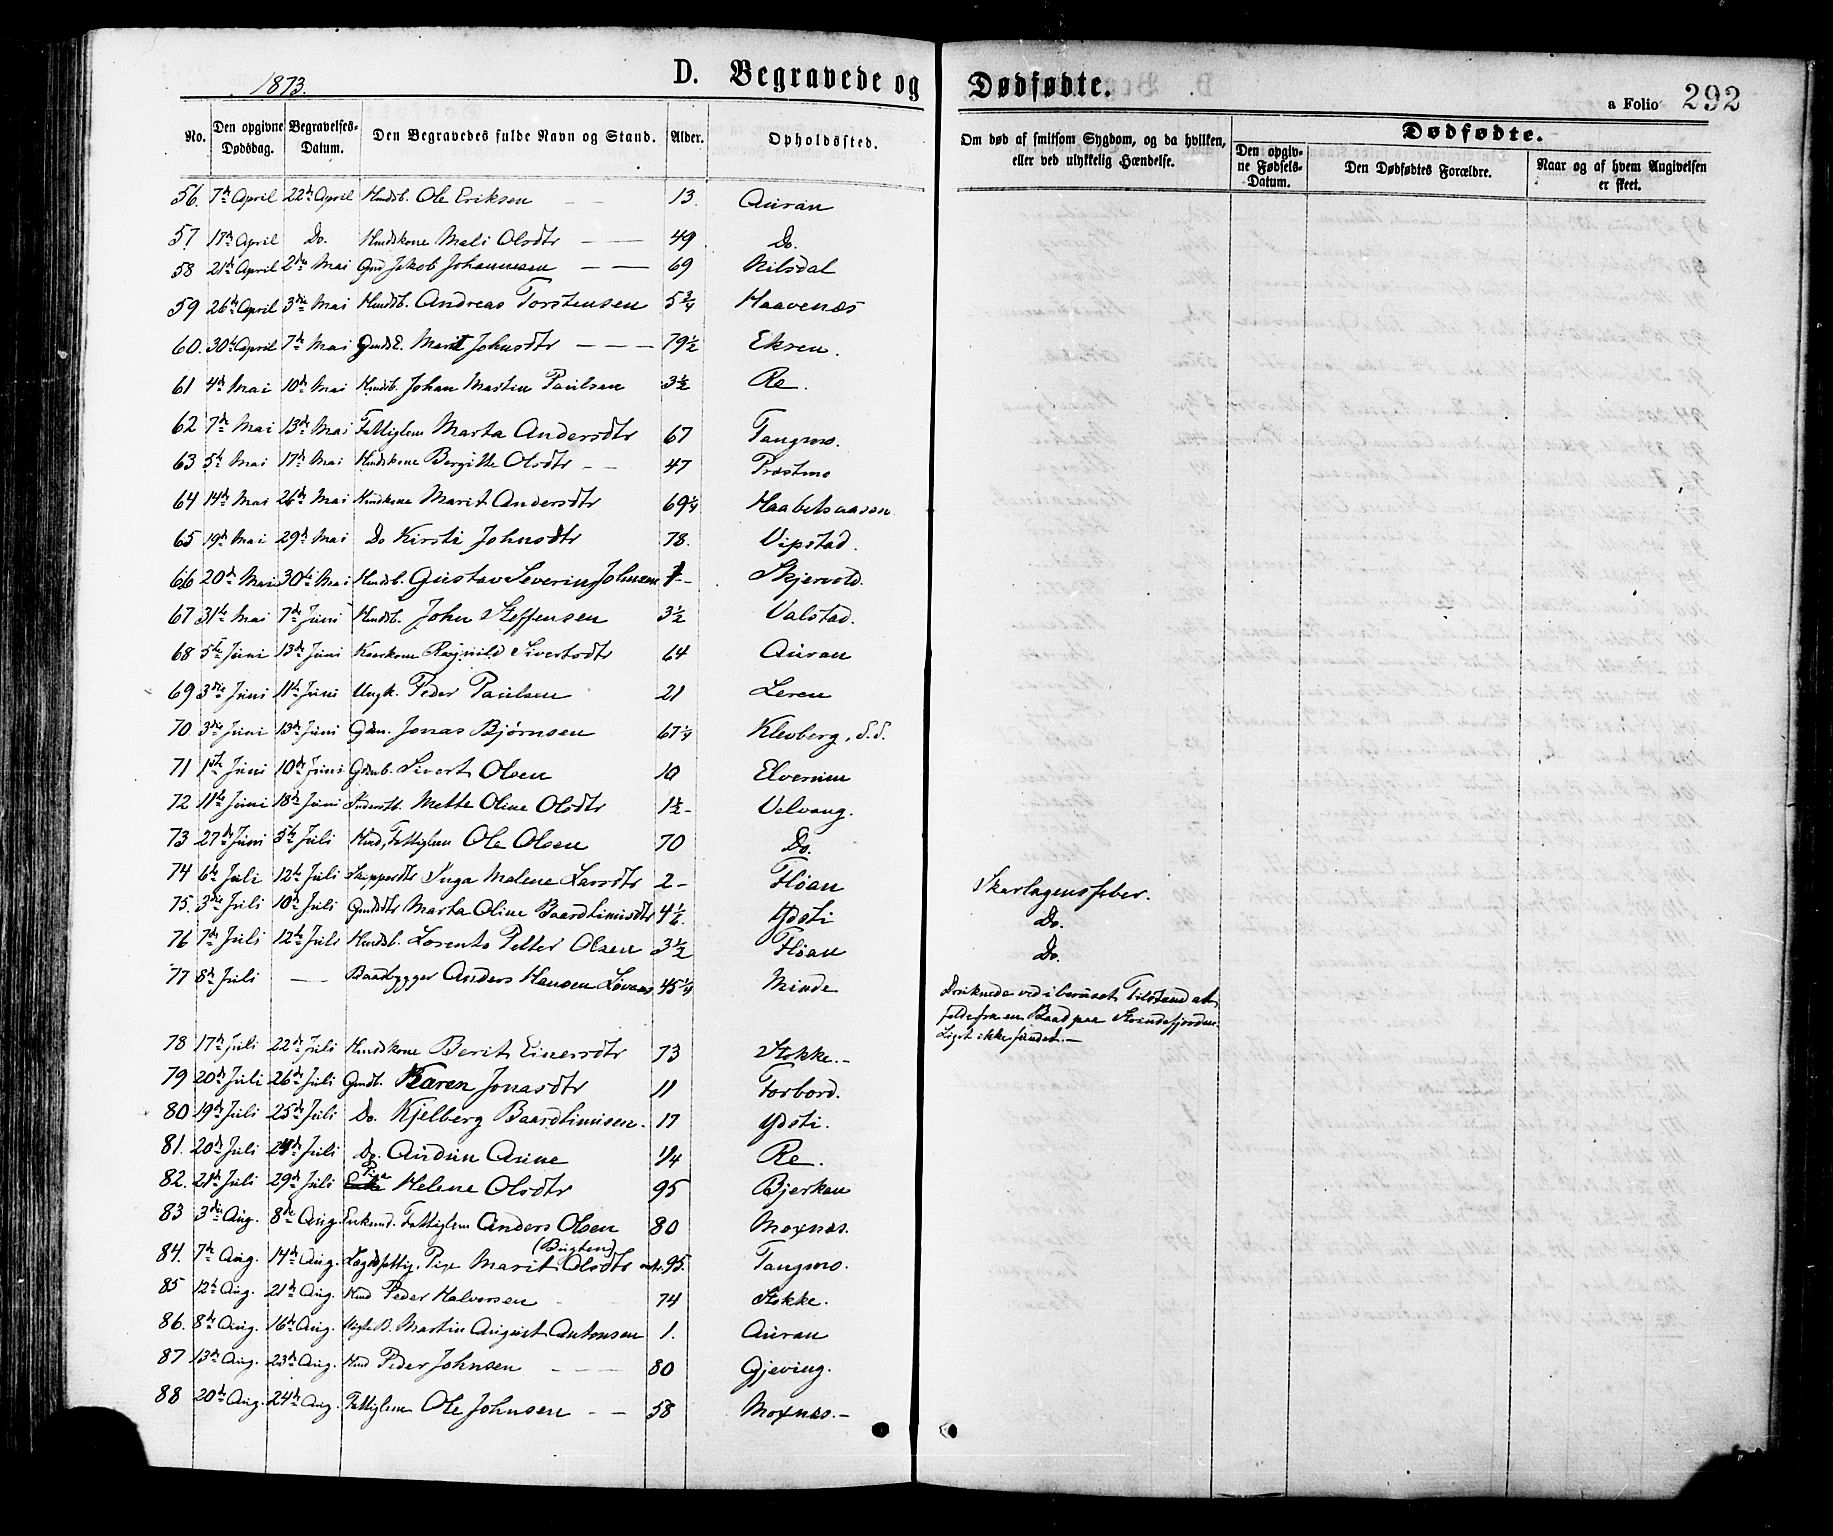 1873.
D. Begravede og Dødfødte.
a Folio 292
No. Den opgivne Dødsdag. Begravelses-Datum. Den Begravedes fulde Navn og Stand. Alder. Opholdssted. Om død af smitsom Sygdom, og da hvilken, eller ved ulykkelig Hændelse. Dødfødte.
Den opgivne Fødsels-Datum. Den Dødfødtes Forældre. Naar og af hvem Angivelsen er skeet.
56. 7de April 22de April Husdb. Ole Eriksen 13. Auran
57 17de April Do. Husdskone Mali Olsdtr 49 Do.
58 21de April 2den Mai Gmd Jakob Johannesen 69 Nilsdal
59 26de April 3die Mai Husdb. Andreas Torstensen 5 3/4 Haavenæs
60. 30te April 7de Mai Marit Johnsdtr 79 1/2 Ekren.
61 4de Mai 10de Mai Husdb. Johan Martin Paulsen 3 1/2 Re.
62 7de Mai 13de Mai Fattiglem Marta Andersdtr 67 Tangmo.
63 5te Mai 17de Mai Husdskone Bergitte Olsdtr 47 Præstmo
64 14de Mai 26de Mai Husdkone Marit Andersdtr 69 1/4 Haabetsaasen
65 19de Mai 29de Mai Do Kirsti Johnsdtr 78. Vipstad.
66 20de Mai 30te Mai Husdb. Gustav Severin Johnsen 1- Skjervold.
67 31te Mai 7de Juni Husdb. John Steffensen 3 1/2 Valstad.
68 5te Juni 13de Juni Kaarkone Ragnild Sivertsdtr 64 Auran
69 3die Juni 11te Juni Ungk. Peder Paulsen 21 Leren
70 3die Juni 13de Juni Gdm. Jonas Bjørnsen 67 1/4 Klevberg, S.d.
71 1ste Juni 10de Juni Gdmb. Sivert Olsen 10 Elverum
72 11te Juni 18de Juni Mette Oline Olsdtr 1 1/2- Velvang.
73 27de Juni 5te Juli Husd, Fattiglem Ole Olsen 70 Do.
74 6te Juli 12te Juli Skipperdtr Inga Malene Larsdtr 2- Fløan Skarlagensfeber.
75. 3die Juli 10de Juli Gmdsdtr Marta Oline Baardtinusdtr 4 1/2. Ydsti Do.
76 7de Juli 12te Juli Husdsb. Lorents Petter Olsen 3 1/2 Fløan Do.
77 8de Juli — Baadbygger Anders Hansen Løvaas 45 1/4 Minde Druknede ved i beruset Tilstand at
falde fra en Baad paa Strindefjorden.
Liget ikke fundet.—
78 17de Juli 22de Juli Husdkone Berit Einersdtr 73 Stokke.—
79 20de Juli 26de Juli Gmdb. Karen Jonasdtr 11 Forbord.
80 19de Juli 25de Juli Do. Kjelberg Baardtinusen. 17 Ydsti.
81. 20de Juli 24de Juli Do. Audun Arne 1/4 Re.
82. 21de Juli 29de Juli Pige Helene Olsdtr 95 Bjerkan
83 3die Aug. 8de Aug. Enkemd. Fattiglem Anders Olsen 80 Moxnæs.
84. 7de Aug. 14de Aug. Lægdsfattig. Pige Marit Olsdtr (Bugten) 95. Tangmo.
85 12te Aug. 21de Aug. Husd Peder Halvorsen 74 Stokke.
86. 8de Aug. 16de Aug. Martin August Antonsen 1. Auran
87 13de Aug. 23de Aug. Husd Peder Johnsen 80 Gjeving.
88 20de Aug. 24de Aug. Fattiglem Ole Johnsen 58 Moxnæs.—